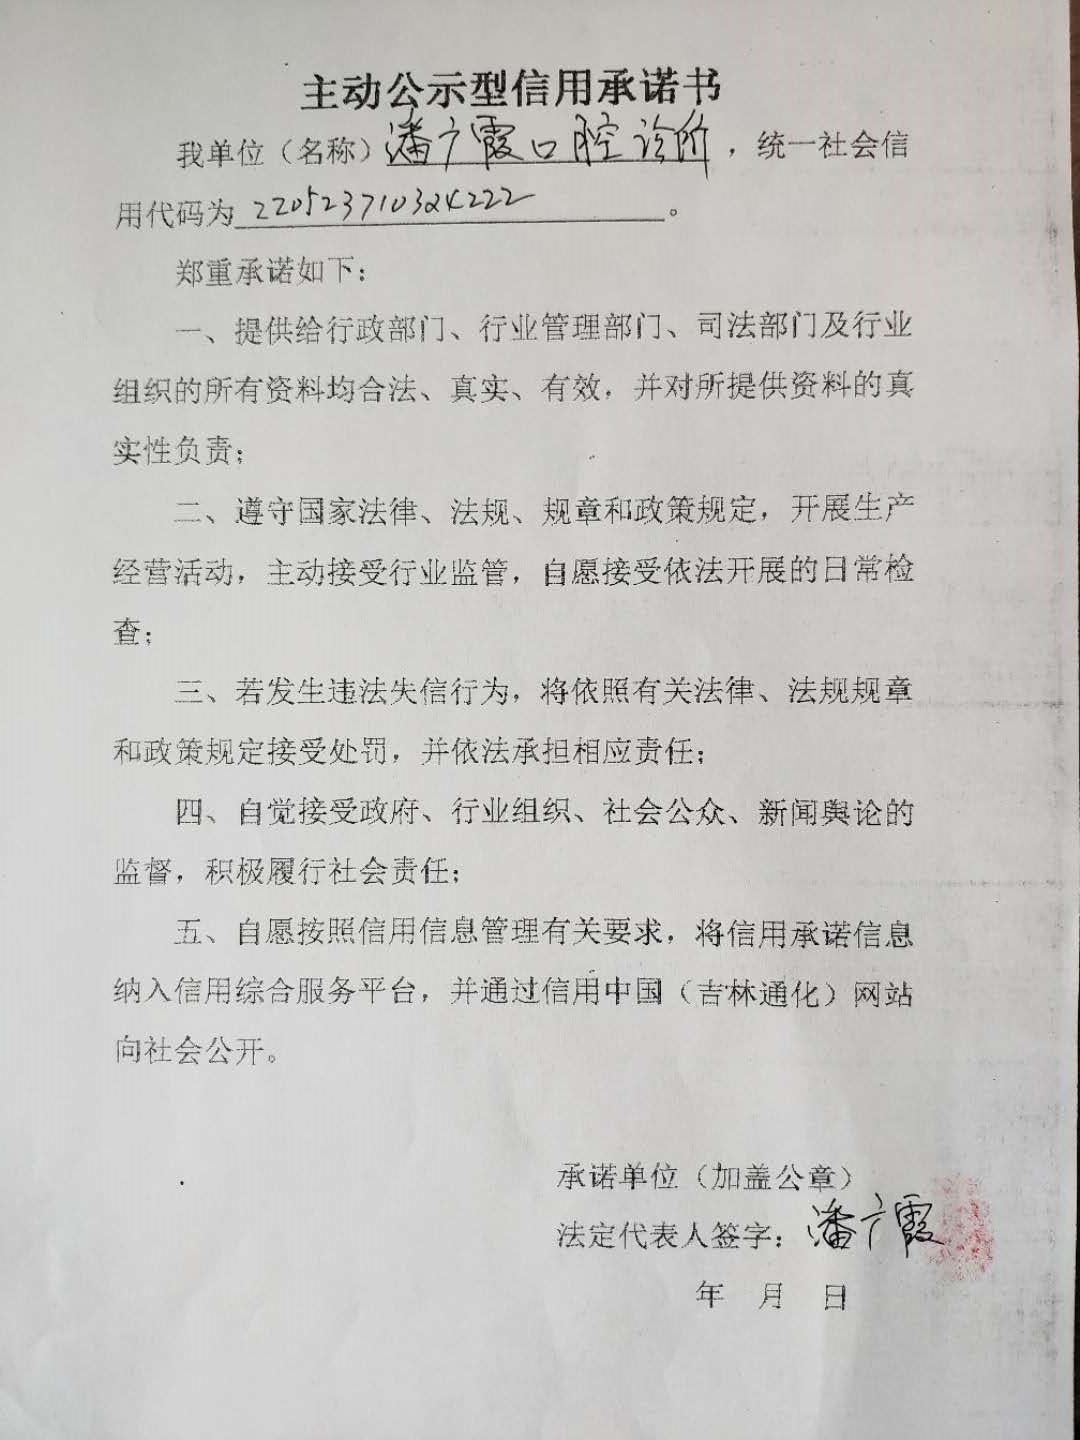 主动公示型信用承诺书
我单位（名称）潘广霞口腔诊所，统一社会信
用代码为220523710324222。
郑重承诺如下：
一、提供给行政部门、行业管理部门、司法部门及行业
组织的所有资料均合法、真实、有效，并对所提供资料的真
实性负责；
二、遵守国家法律、法规、规章和政策规定，开展生产
经营活动，主动接受行业监管，自愿接受依法开展的日常检
查；
三、若发生违法失信行为，将依照有关法律、法规规章
和政策规定接受处罚，并依法承担相应责任；
四、自觉接受政府、行业组织、社会公众、新闻舆论的
监督，积极履行社会责任；
五、自愿按照信用信息管理有关要求，将信用承诺信息
纳入信用综合服务平台，并通过信用中国（吉林通化）网站
向社会公开。
承诺单位（加盖公章）
法定代表人签字：潘广霞
年 月 日